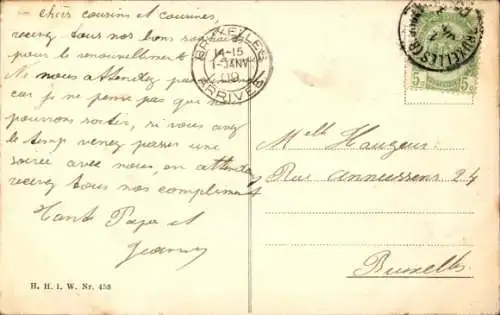 chers cousins et cousines,
recevez tous nos bons souhaits
pour le renouvellement
Ne nous attendez pas
car je ne pense pas que n
pourrons sortir, si vous avez
le temps venez passer une
soirée avec nous, en attendant
recevez tous nos compliments
Papa et
Jeanne
H. H. I. W. Nr. 453
BRUXELLES
14-15
1 JANV
09
ARRIVEE
BRUXELLES
5c 5c
Melle Hauzeur
Rue Anneessens 24
Bruxelles